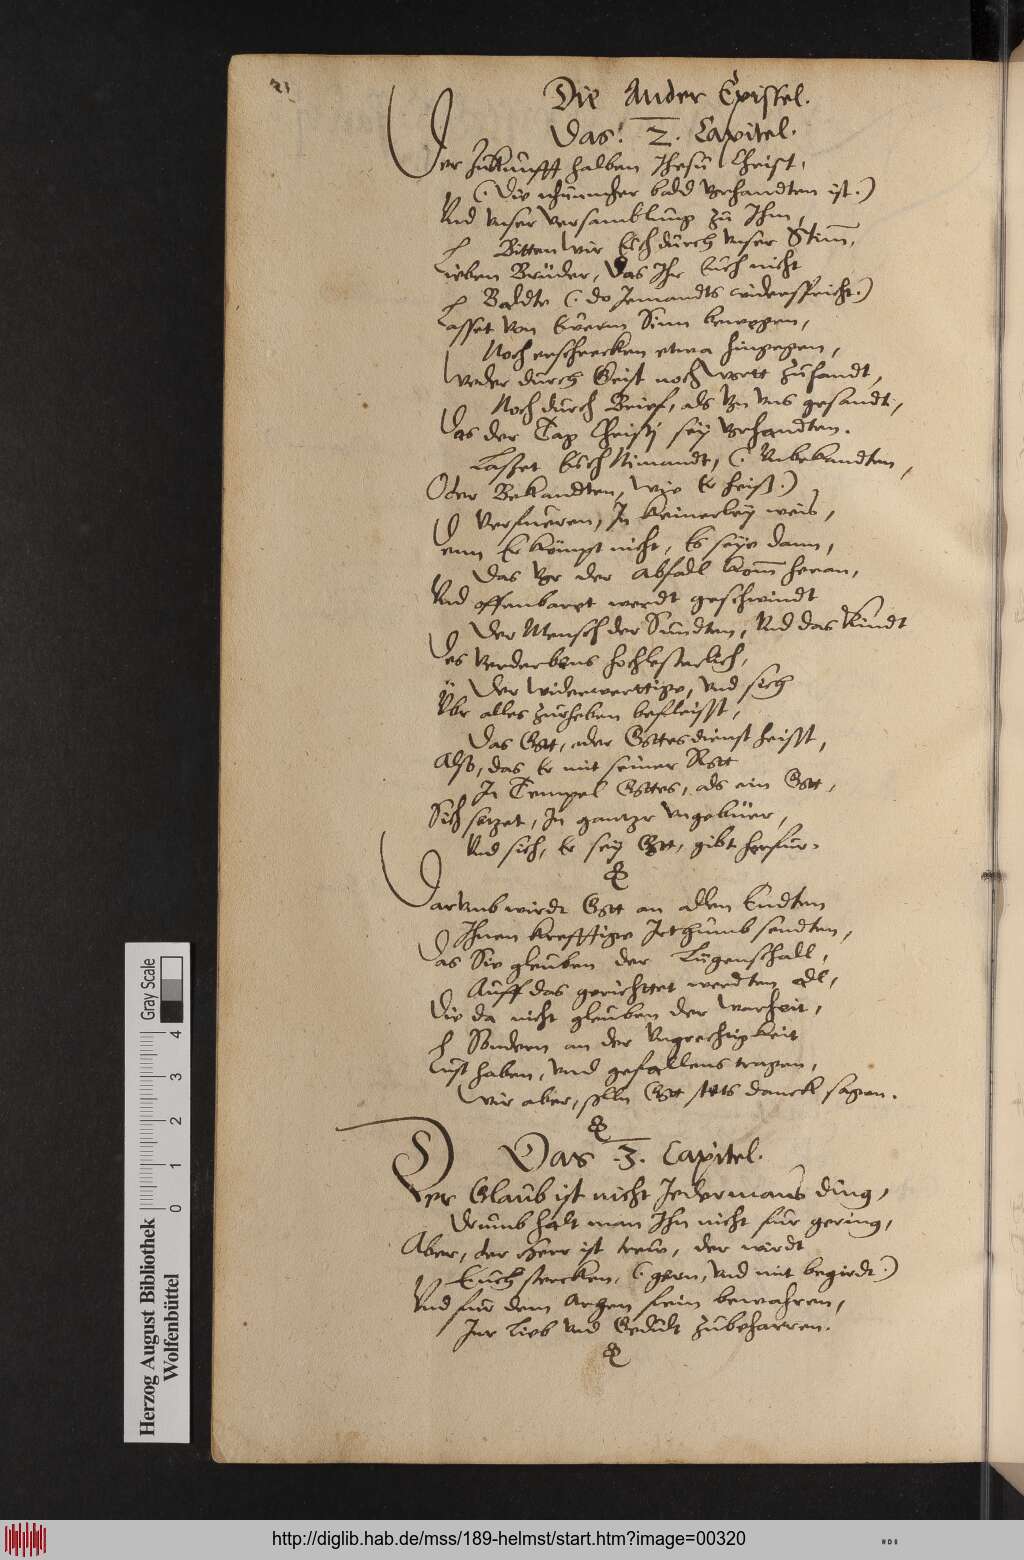 Die Ander Epistel.
Das. 2. Capitel.
Der Zukunfft halben Jhesu Christ,
(Die nhunmher bald vorhandten ist.)
Vnd vnser versamblung zu Ihm,
Bitten wir Euch durch vnser Stim̄,
Lieben Brüder, Das Ihr Euch nicht
Baldte (do Jemandts widerspricht.)
Lasset von Ewerm Sinn bewegen,
Noch erschrecken etwa hingegen,
Weder durch Geist noch wort zuhandt,
Noch durch Brief, als von vns gesandt,
Das der Tag Christi sey vorhandten.
Lasset Euch Nimandt, (Vnbekandten,
Oder Bekandten, wie Er heist.)
Verfueren, In keinerley weis,
Denn Er kömpt nicht, Es seye dann,
Das vor der Abfall kom̄ heran,
Vnd offenbaret werdt geschwindt
Der Mensch der Sundten, Vnd das Kindt
Des verderbens hochlesterlich,
Der widerwerttige, vnd sich
Vbr alles zurheben befleisst,
Das Gott, oder Gottesdienst heisst,
Also, das Er mit seiner Rott
In Tempel Gottes, als ein Gott,
Sich setzet, In gantzr vngebüer,
Vnd sich, Er sey Gott, gibt herfur.
Darumb wirdt Gott an allen Endten
Ihnen krefftige Irthumb sendten,
Das Sie gleuben der Lugenschall,
Auff das gerichttet werdten all,
Die da nicht gleuben der warheit,
Sondern an der Vngrechtigkeit
Lust haben, vnd gefallens tragen,
Wir aber, solln Gott stets danck sagen.
Das .3. Capitel.
Der Glaub ist nicht Jedermans ding,
Drumb halt man Ihn nicht fur gering,
Aber, der Herr ist treuw, der wirdt
Euch stercken, (gern, vnd mit begirdt.)
Vnd fur dem Argen fein bewahren,
Inr Lieb vnd Gedult zubeharren.
Herzog August Bibliothek
Wolfenbüttel
0 1 2 3 4
Gray Scale
http://diglib.hab.de/mss/189-helmst/start.htm?image=00320